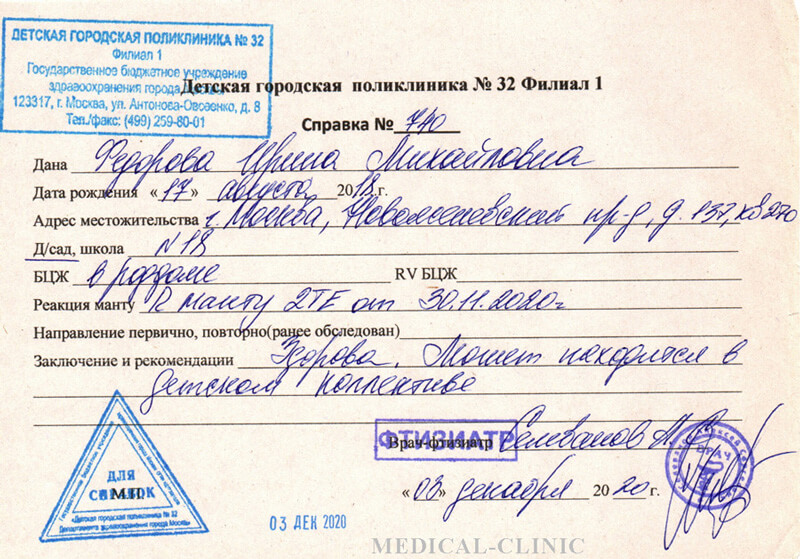 ДЕТСКАЯ ГОРОДСКАЯ ПОЛИКЛИНИКА № 32
Филиал 1
Государственное бюджетное учреждение
здравоохранения города
123317, г. Москва, ул. Антонова-Овсеенко, д. 8
Тел./факс: (499) 259-80-01
Детская городская поликлиника № 32 Филиал 1
Справка № 740
Дана Федорова Ирина Михайловна
Дата рождения «17» августа 2018 г.
Адрес местожительства г. Москва, пр-д, д. 137, кв 270
Д/сад, школа N 18
БЦЖ в роддоме RV БЦЖ
Реакция манту R манту 2TE от 30.11.2020г
Направление первично, повторно(ранее обследован)
Заключение и рекомендации Здорова. Может находится в
детском коллективе
ФТИЗИАТР
Врач-фтизиатр Селиванов
«03» декабря 2020 г.
ВРАЧ
ДЛЯ
СПРАВОК
МП
«Детская городская поликлиника № 32
Департамента здравоохранения города Москвы»
03 ДЕК 2020
MEDICAL-CLINIC